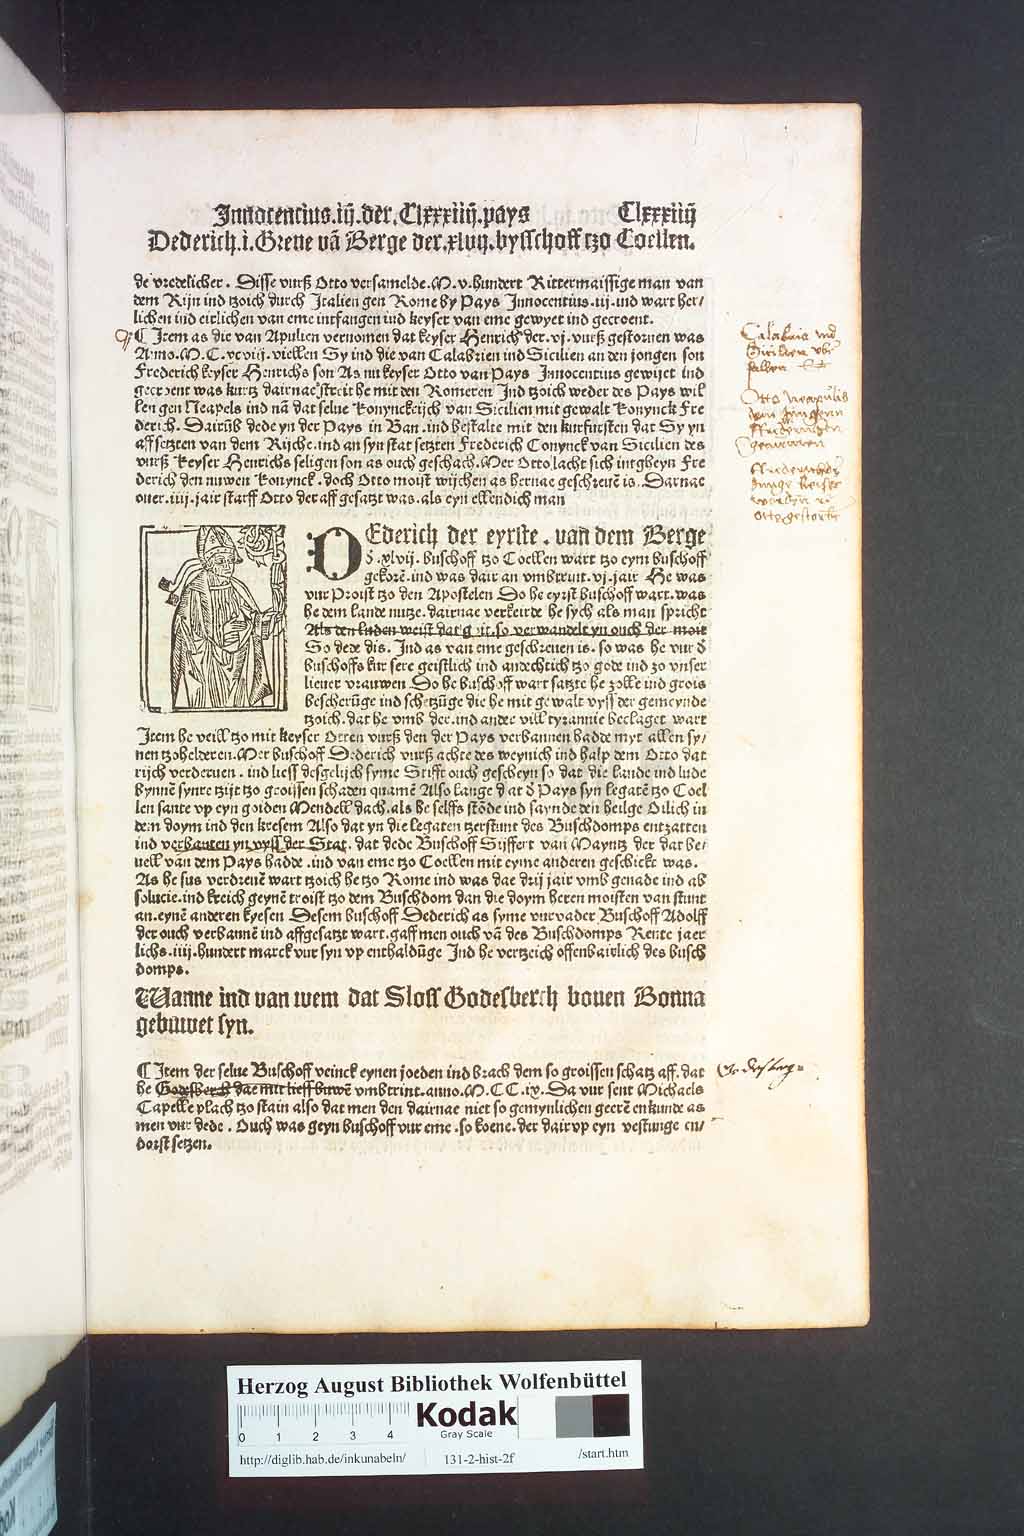 Innocentius.iij.der.Clxxxiiij.pays Clxxxiiij
Dederich.i.Greue vā Berge der.xlvij.bysschoff tzo Coellen.
de vredelicher. Disse vurß Otto versamelde.M.v.hundert Rittermaissige man van
dem Rijn ind tzoich durch Italien gen Rome by Pays Innocentius.iij.ind wart her/
lichen ind eirlichen van eme intfangen ind keyser van eme gewyet ind gecroent.
¶ Item as die van Apulien vernomen dat keyser Henrich der.vj.vurß gestoruen was
Anno.M.C.xcviij.viellen Sy ind die van Calabrien ind Sicilien an den jongen son
Frederich keyser Henrichs son As nu keyser Otto van Pays Innocentius gewijet ind
gecroent was kurtz dairnae streit he mit den Romeren Ind tzoich weder des Pays wil
len gen Neapels ind nā dat selue Konynckrijch van Sicilien mit gewalt Konynck Fre
derich. Dairūb dede yn der Pays in Ban.ind bestalte mit den kurfursten dat Sy yn
affsetzten van dem Rijche.ind an syn stat setzten Frederich Conynck van Sicilien des
vurß Keyser Henrichs seligen son as ouch geschach.Mer Otto lacht sich intgheyn Fre
derich den nuwen Konynck.doch Otto moist wijchen as hernae geschreuē is. Darnae
ouer.iiij.jair starff Otto der aff gesatzt was.als eyn ellendich man
DEderich der eyrste. van dem Berge
d̄.xlvij.Buschoff tzo Coellen wart tzo eym buschoff
gekorē.ind was dair an vmbtrint.vj.jair He was
vur Proist tzo den Apostelen Do he eyrst buschoff wart.was
he dem lande nutze.dairnae verkeirde he sych als man spricht
Als den luden weist dat goit.so verwandelt yn ouch der moit
So dede dis. Ind as van eme geschreuen is.so was he vur d̄
buschoffs kur sere geistlich ind andechtich tzo gode ind zo vnser
lieuer vrauwen Do he buschoff wart satzte he zolle ind grois
bescherūge ind schetzūge die he mit gewalt vyss der gemeynde
tzoich.dat he vmb der.ind ander vill tyrannie beclaget wart
Item he veill tzo mit keyser Otten vurß den der Pays verbannen hadde myt allen sy/
nen tzohelderen.Mer buschoff Dederich vurß achte des weynich ind halp dem Otto dat
rijch verderuen. ind liess desgelijch syme Stifft ouch gescheyn so dat die lande ind lude
bynnē synre tzijt tzo groissen schaden quamē Also lange dat d̄ Pays syn legatē tzo Coel
len sante vp eyn golden Mendell dach.als he selffs stōde ind saynde den heilge Oilich in
dem doym ind den kresem Also dat yn die legaten tzerstunt des Buschdomps entzatten
ind verbanten yn vyss der Stat. dat dede Buschoff Sijffert van Mayntz der dat be/
uell van dem Pays hadde.ind van eme tzo Coellen mit eyme anderen geschickt was.
As he sus verdreuē wart tzoich he tzo Rome ind was dae drij jair vmb genade ind ab
solucie.ind kreich geynē troist tzo dem Buschdom dan die doym heren moisten van stunt
an.eynē anderen kyesen Desem buschoff Dederich as syme vurvader Buschoff Adolff
der ouch verbannē ind affgesatzt wart.gaff men ouch vā des Buschdomps Rente jaer
lichs.iiij.hundert marck vur syn vp enthaldūge Ind he vertzeich offenbairlich des busch
domps.
Wanne ind van wem dat Sloss Godesberch bouen Bonna
gebuwet syn.
¶ Item der selue Buschoff veinck eynen joeden ind brach dem so groissen schatz aff.dat
he Godesberch dae mit lieff buwē vmbtrint.anno.M.CC.ix.Da vur sent Michaels
Capelle plach tzo stain also dat men den dairnae niet so gemynlichen geerē enkunde as
men vur dede. Ouch was geyn buschoff vur eme.so koene.der dair vp eyn vestunge en/
dorst setzen.
Calabria vnd
Otto Neapolis
dem jüngern
Friderichen
genommen
junge keiser
Otto gestorbē
Herzog August Bibliothek Wolfenbüttel
0 1 2 3 4 Kodak
Gray Scale
http://diglib.hab.de/inkunabeln/ 131-2-hist-2f /start.htm